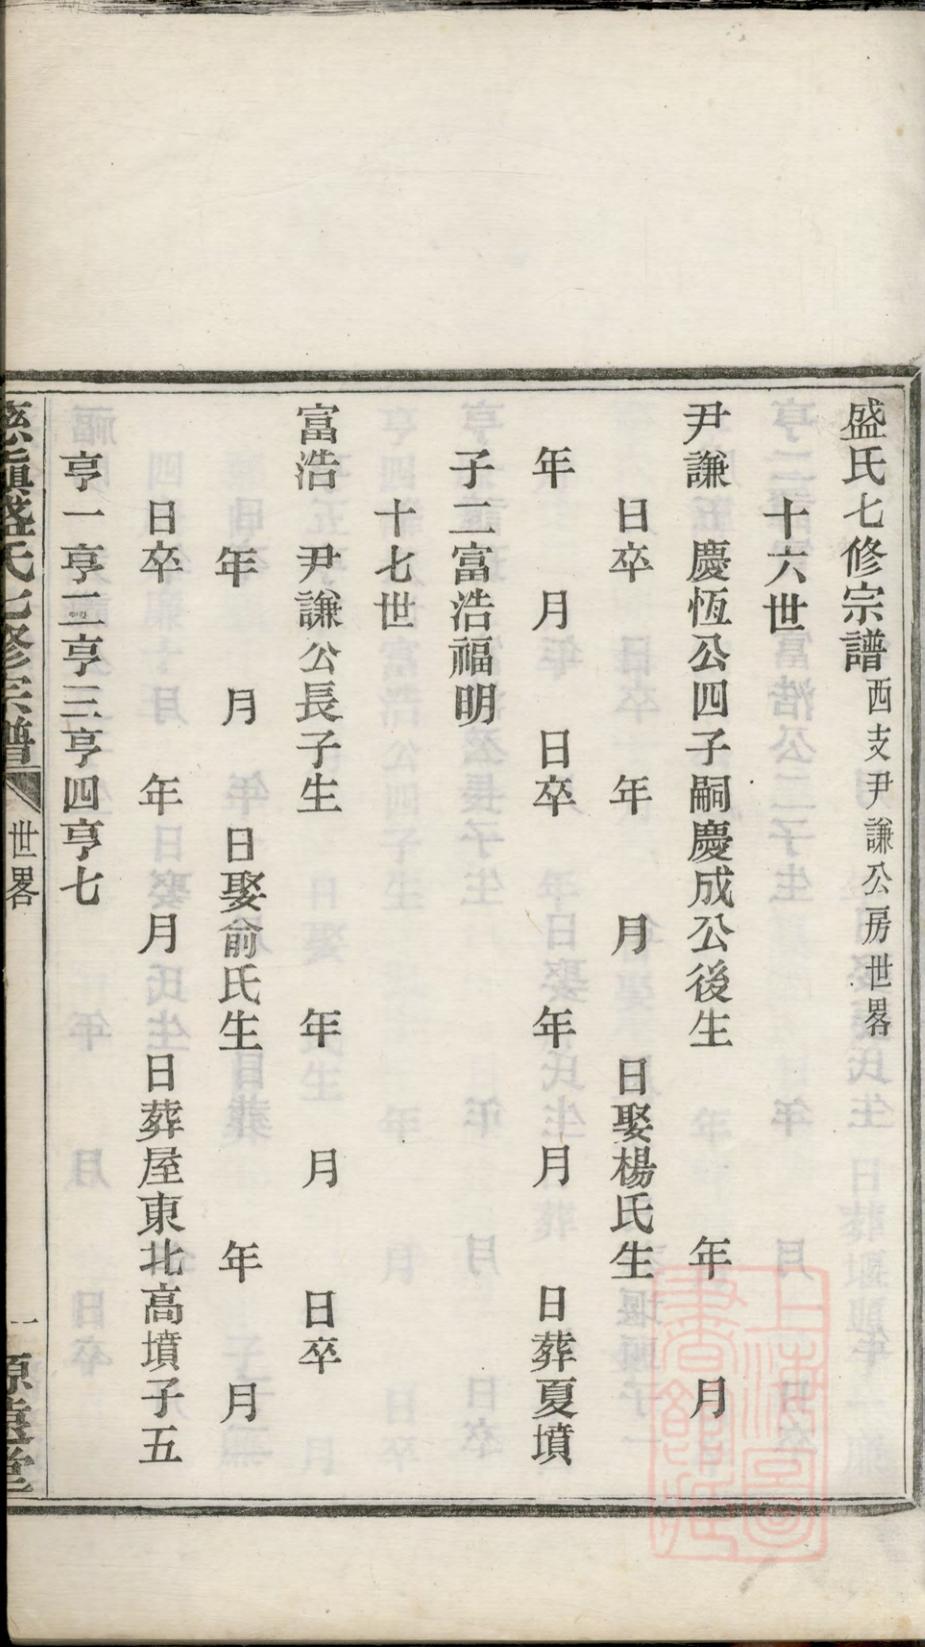 盛氏七修宗譜 西支尹謙公房世畧
十六世
尹謙 慶恆公四子嗣慶成公後生 年 月
日卒 年 月 日娶楊氏生
年 月 日卒 年 月 日葬夏墳
子二富浩福明
十七世
富浩 尹謙公長子生 年 月 日卒
年 月 日娶俞氏生 年 月
日卒 年 月 日葬屋東北高墳子五
亨一亨二亨三亨四亨七
盛氏七修宗譜 世畧 一